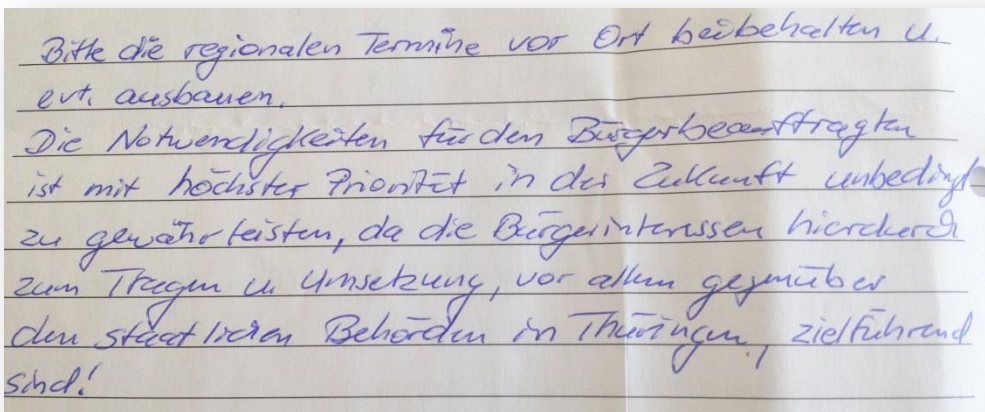 Bitte die regionalen Termine vor Ort beibehalten u.
evt. ausbauen.
Die Notwendigkeiten für den Bürgerbeauftragten
ist mit höchster Priorität in der Zukunft unbedingt
zu gewährleisten, da die Bürgerinteressen hierdurch
zum Tragen u Umsetzung, vor allem gegenüber
den staatlichen Behörden in Thüringen, zielführend
sind!